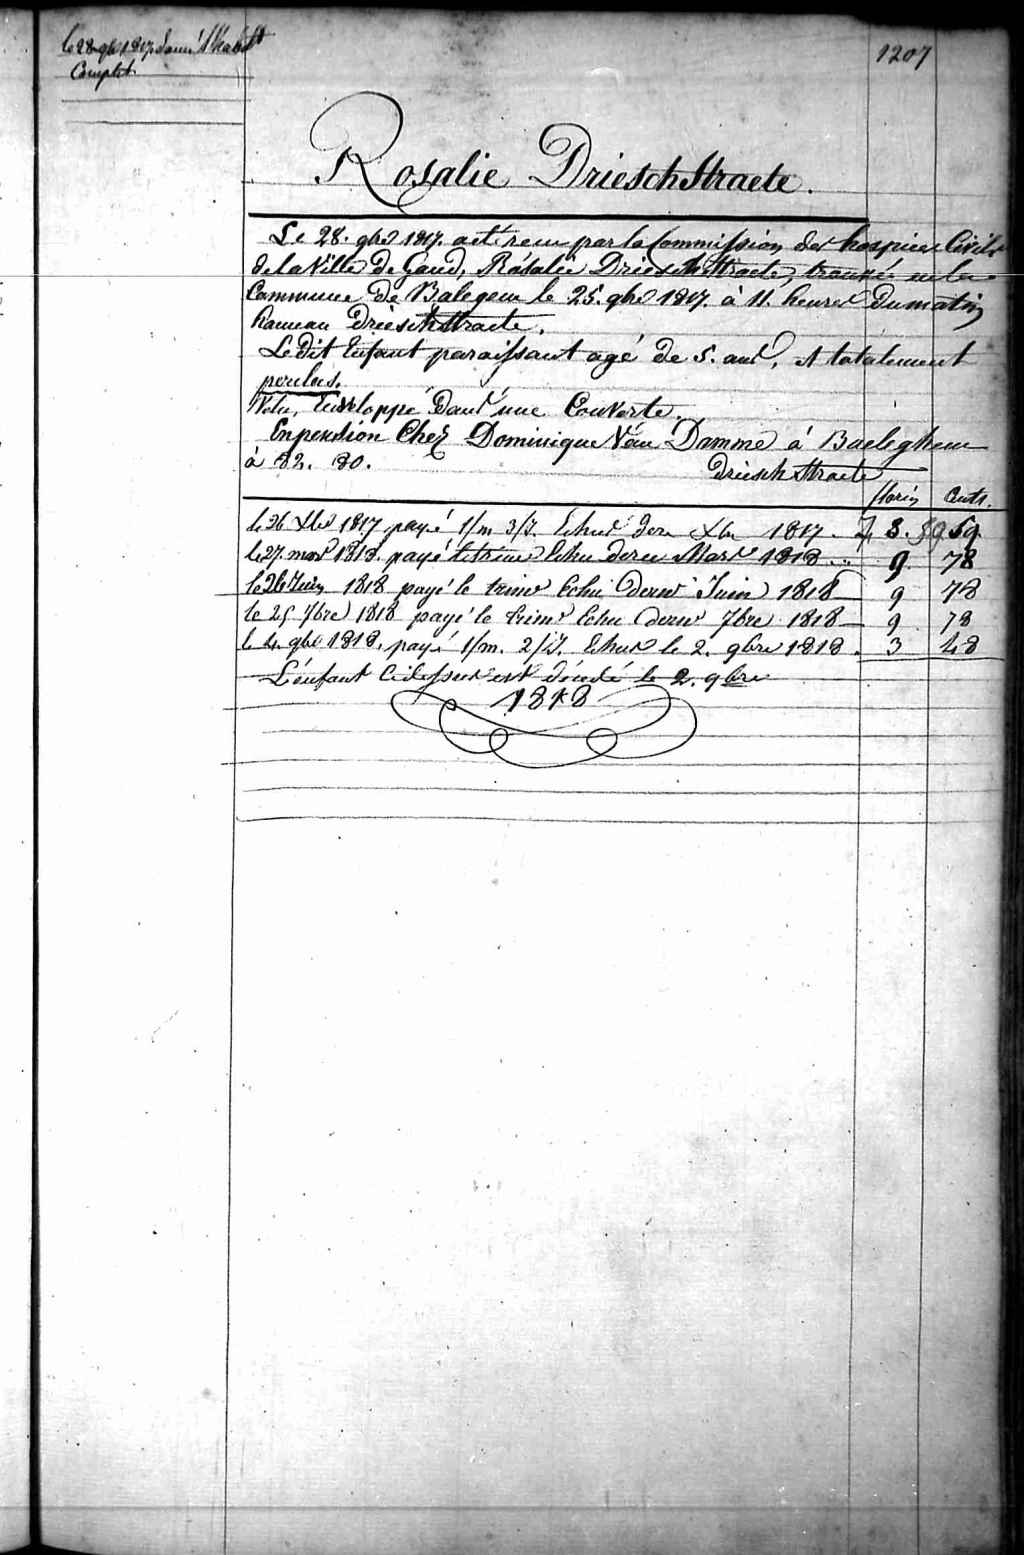 le 28 gbr 1817 donné l'habillt
Complet
1207
Rosalie Drieschstraete.
Le 28. gbre 1817. a été recu par la Commission des hospices Civils
de la Ville de Gand, Rosalie Drieschstraete, trouvée en la
Commune de Balegem le 25. gbre 1817. à 11. heures du matin
hameau Drieschstraete.
Le dit Enfant paraissant agé de 5. ans, et totalement
perclus.
Vetu, Enveloppé dans une Couverte.
En pension Chez Dominique Van Damme à Baeleghem
à 82. 80.
Drieschstraete
florin Cents.
le 26 Xbre 1817 payé 1/m 3/J. Echus dern Xbre 1817. 3. 59
le 27 mars 1818. payé le trime Echu dern Mars 1818 9 78
le 26 Juin 1818 payé le trime Echu dern Juin 1818 9 78
le 25 7bre 1818 payé le trime Echu dern 7bre 1818 9 78
le 4. gbre 1818. payé 1/m. 2/J. Echus le 2. gbre 1818. 3 48
L'enfant Cidessus est décédé le 2. gbre
1818